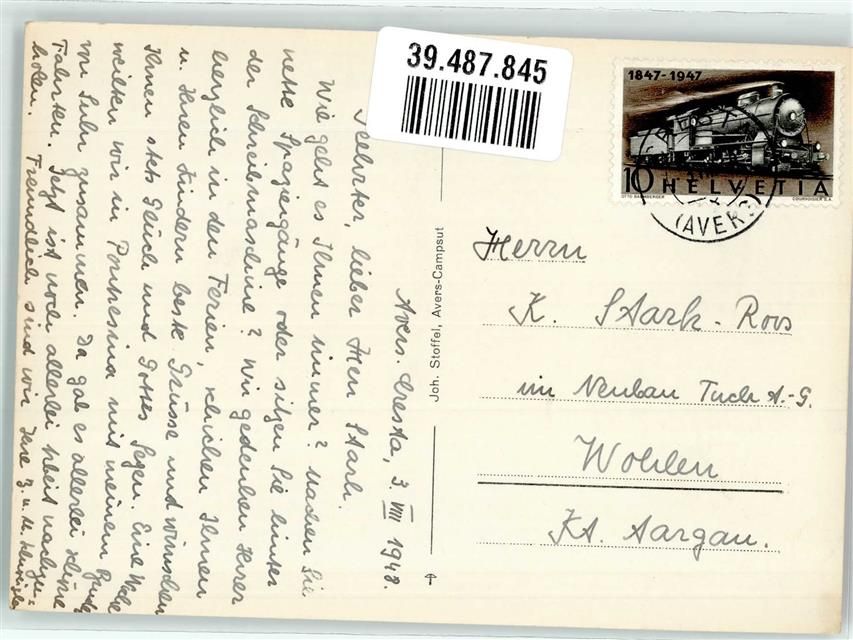 39.487.845
1847-1947
10 HELVETIA
OTTO BAUMBERGER
COURVOISIER S.A.
(AVERS)
Avers-Cresta, 3. VIII 1948.
Geehrter, lieber Herr Stark.
Wie geht es Ihnen immer? Machen Sie
nette Spaziergänge oder sitzen Sie hinter
der Schreibmaschine? Wir gedenken Ihrer
herzlich in den Ferien, schicken Ihnen
u. Ihren Kindern beste Grüsse und wünschen
Ihnen stets Glück und Gottes Segen. Eine Woche
weilten wir in Pontresina mit meinem Bruder
von Suhr zusammen. Da gab es allerlei schöne
Fahrten. Jetzt ist noch allerlei Arbeit nachzu=
holen. Freundlich sind wir Ihre J. u. M.
Joh. Stoffel, Avers-Campsut
Herrn
K. Stark-Roos
im Neubau Tuch A-G.
Wohlen
Kt. Aargau.